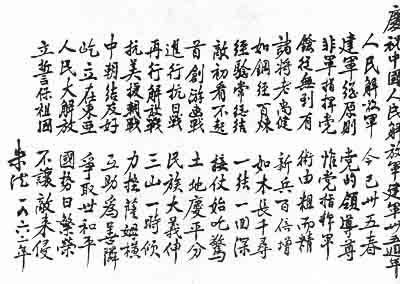 慶祝中國人民解放軍建軍卅五週年
人民解放軍 今已卅五春
建軍經原則 党的領導尊
非軍指揮党 惟党指揮軍
從無到有 術由粗而精
諸將老尚健 新兵百倍增
如鋼經百煉 如木長千尋
經驗常總結 一結一回深
敵初看不起 接仗始吃驚
首創游擊戰 土地慶平分
進行抗日戰 民族大義伸
再行解放戰 三山一時傾
抗美援朝戰 力挫薩姆橫
中朝結友好 互助為善隣
屹立在東亜 爭取世和平
人民大解放 國勢日繁榮
立誓保祖國 不讓敵來侵
朱德 一九六二年